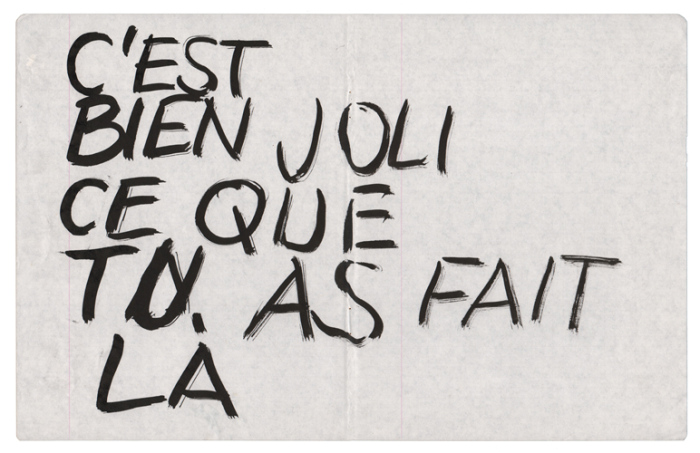 C'EST
BIEN JOLI
CE QUE
TU AS FAIT
LÀ